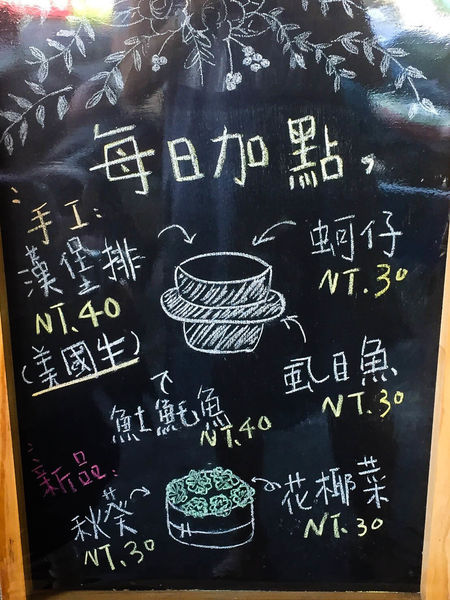 每日加點,
手工:
漢堡排
NT.40
(美國生)
蚵仔
NT.30
虱目魚
NT.30
魟魠魚
NT.40
新品:
秋葵
NT.30
花椰菜
NT.30